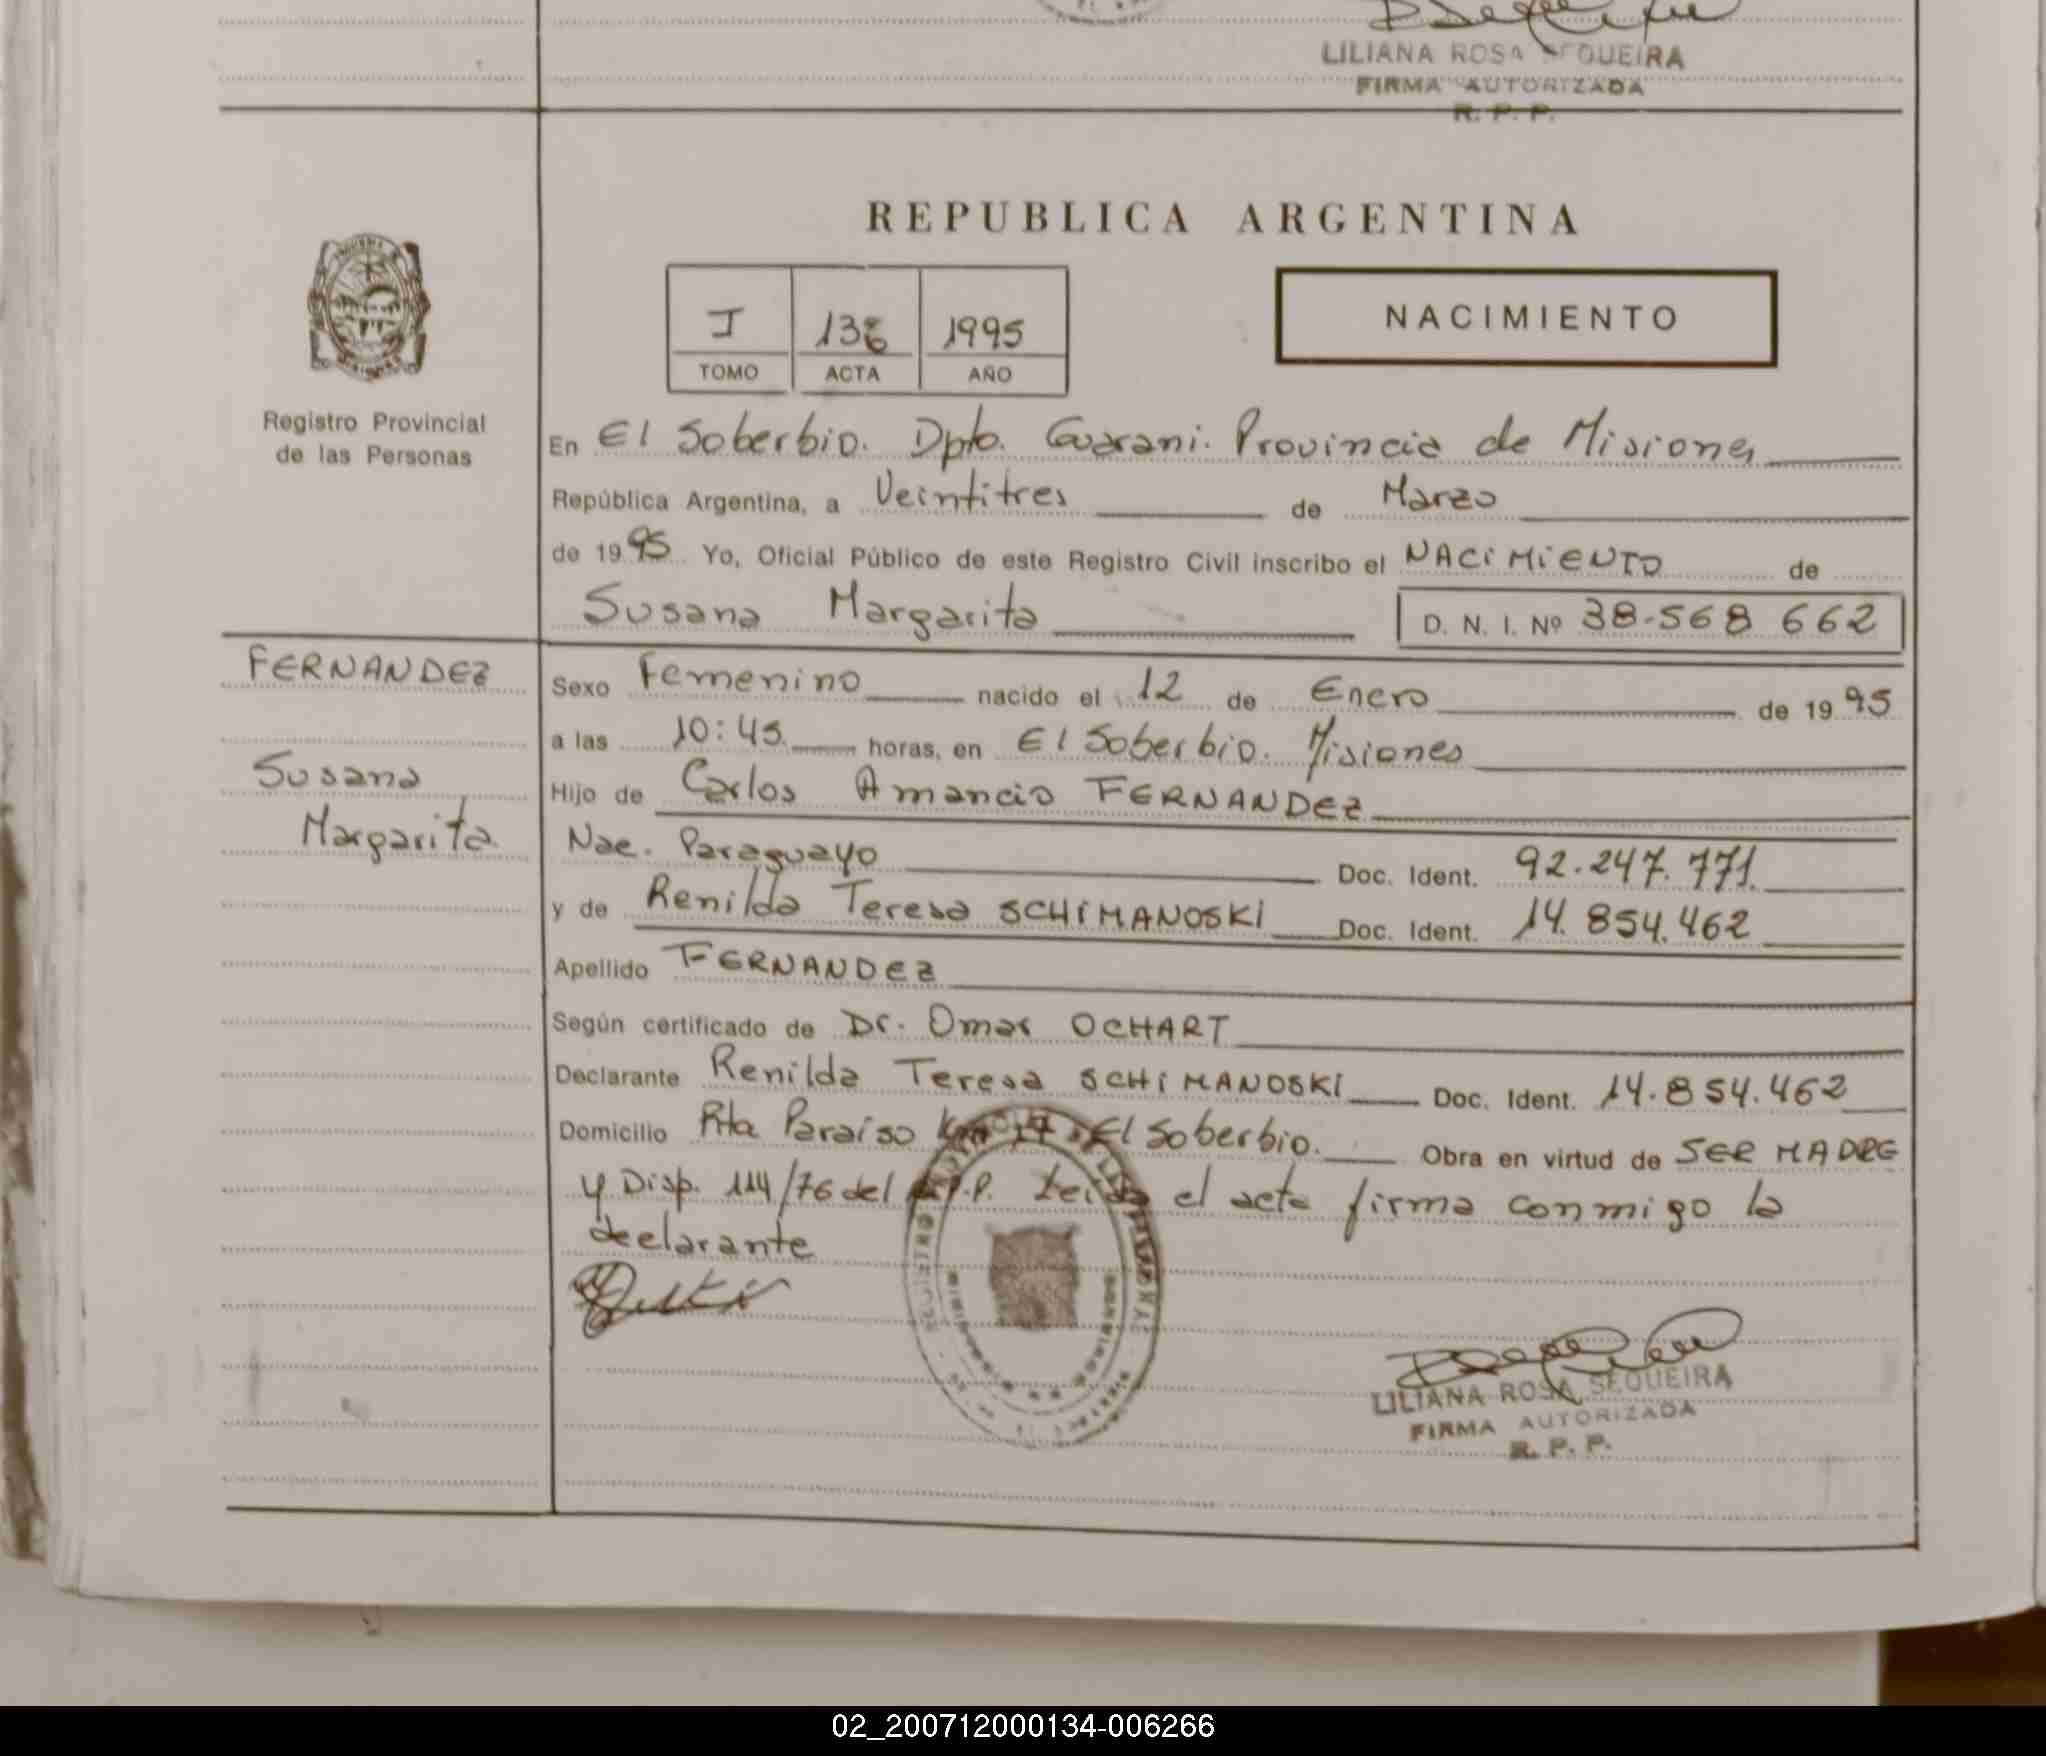 LILIANA ROSA SEQUEIRA
FIRMA AUTORIZADA
R. P. P.
REPUBLICA ARGENTINA
I 136 1995
TOMO ACTA AÑO
NACIMIENTO
Registro Provincial
de las Personas
En El Soberbio. Dpto. Guarani. Provincia de Misiones
República Argentina, a Veintitres de Marzo
de 1995 Yo, Oficial Público de este Registro Civil inscribo el NACIMIENTO de
Susana Margarita D. N. I. Nº 38.568 662
FERNANDEZ
Susana
Margarita
Sexo Femenino nacido el 12 de Enero de 1995
a las 10:45 horas, en El Soberbio. Misiones
Hijo de Carlos Amancio FERNANDEZ
Nac. Paraguayo Doc. Ident. 92.247.771.
y de Renilda Teresa SCHIMANOSKI Doc. Ident. 14.854.462
Apellido FERNANDEZ
Según certificado de Dr. Omar OCHART
Declarante Renilda Teresa SCHIMANOSKI Doc. Ident. 14.854.462
Domicilio Rta Paraiso Km 17 El Soberbio. Obra en virtud de SER MADRE
y Disp. 114/76 del R.P.P. Leida el acta firma conmigo la
declarante
LILIANA ROSA SEQUEIRA
FIRMA AUTORIZADA
R. P. P.
02_200712000134-006266